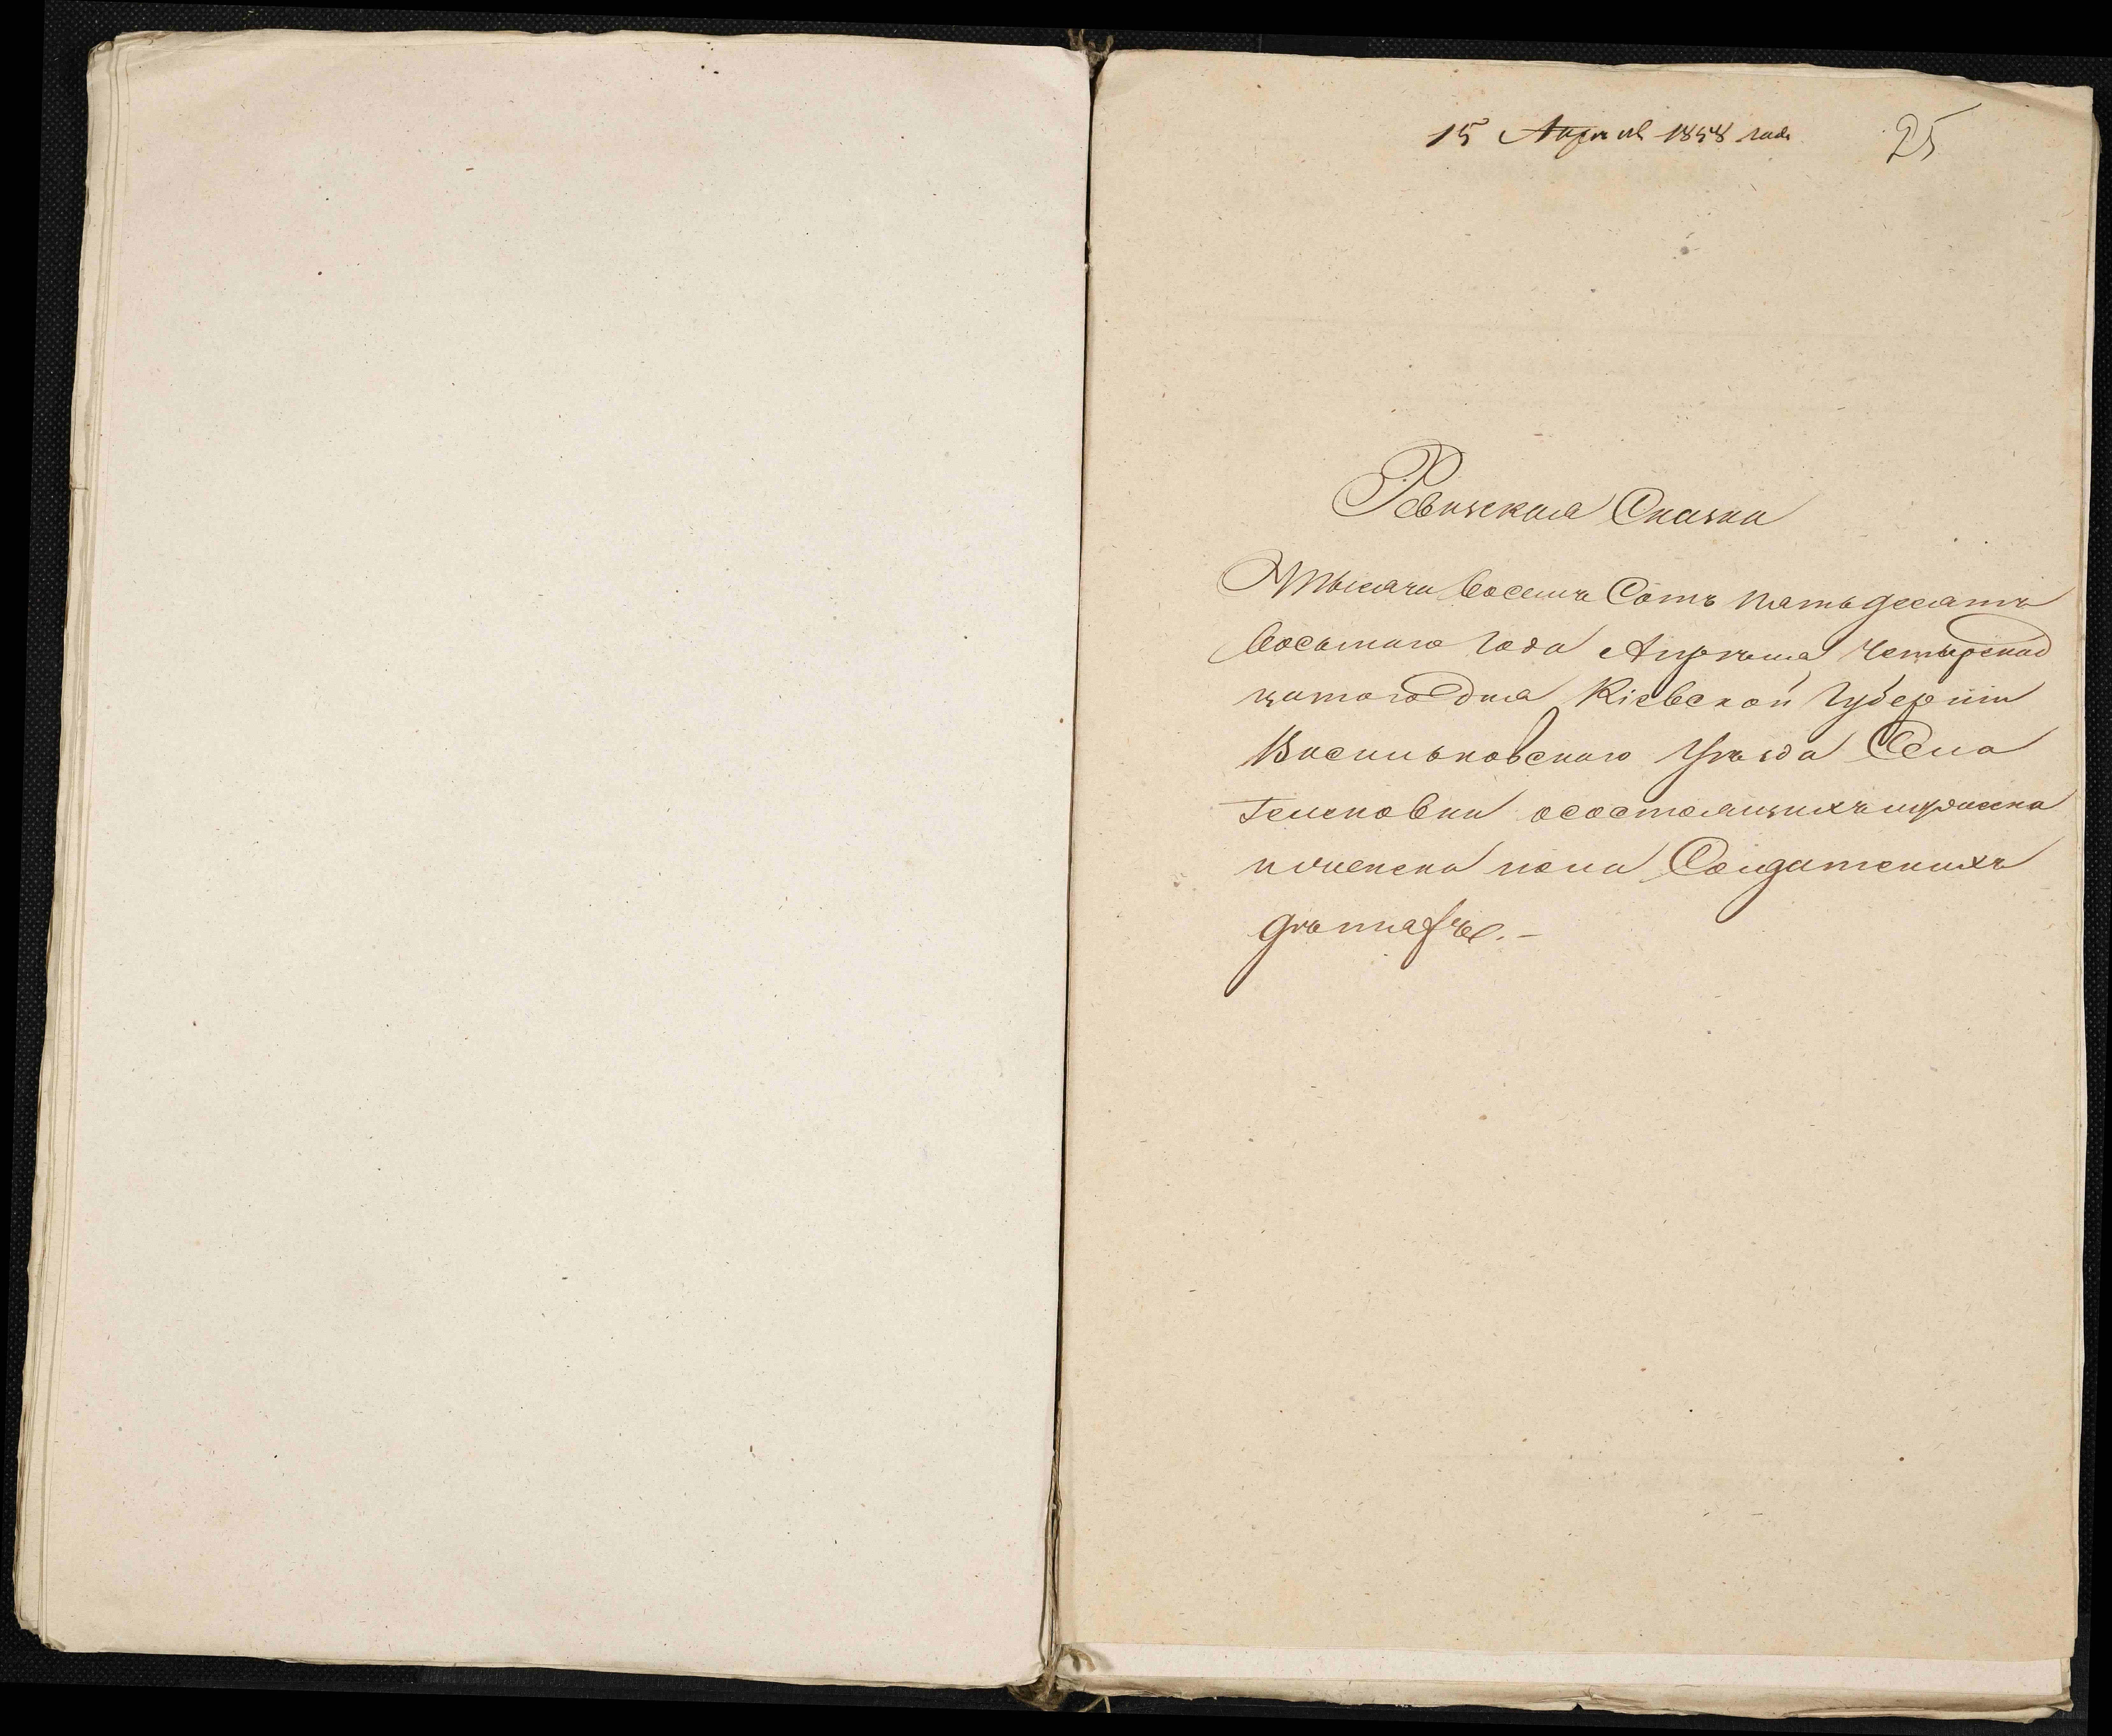 15 Апрѣля 1858 года
25
Ревизская Сказка
Тысяча Восемъ Сотъ пятьдесятъ
Восьмаго Года Апрѣля Четыренад
цатого Дня Кіевской Губерніи
Васильковского Уѣзда Села
осостоящихъ мужеска
иженска пола Солдатскихъ
дѣтяхъ.-